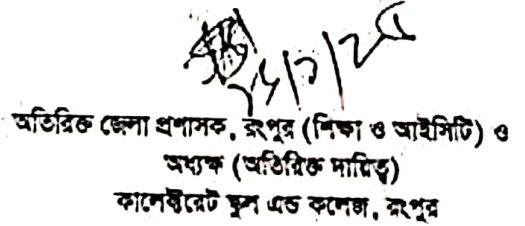 অতিরিক্ত জেলা প্রশাসক, রংপুর (শিক্ষা ও আইসিটি) ও
অধ্যক্ষ (অতিরিক্ত দায়িত্ব)
কালেক্টরেট স্কুল এন্ড কলেজ, রংপুর